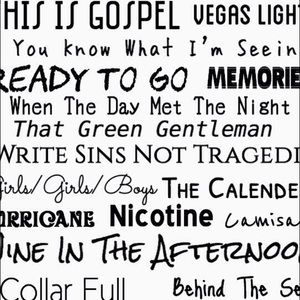 THIS IS GOSPEL VEGAS LIGH
You Know What I'm Seein
READY TO GO MEMORIE
When The Day Met The Night
That Green Gentleman
WRITE SINS NOT TRAGEDI
Girls/Girls/Boys THE CALENDE
URRICANE Nicotine Camisa
NINE IN THE AFTERNOON
Collar Full Behind The Se